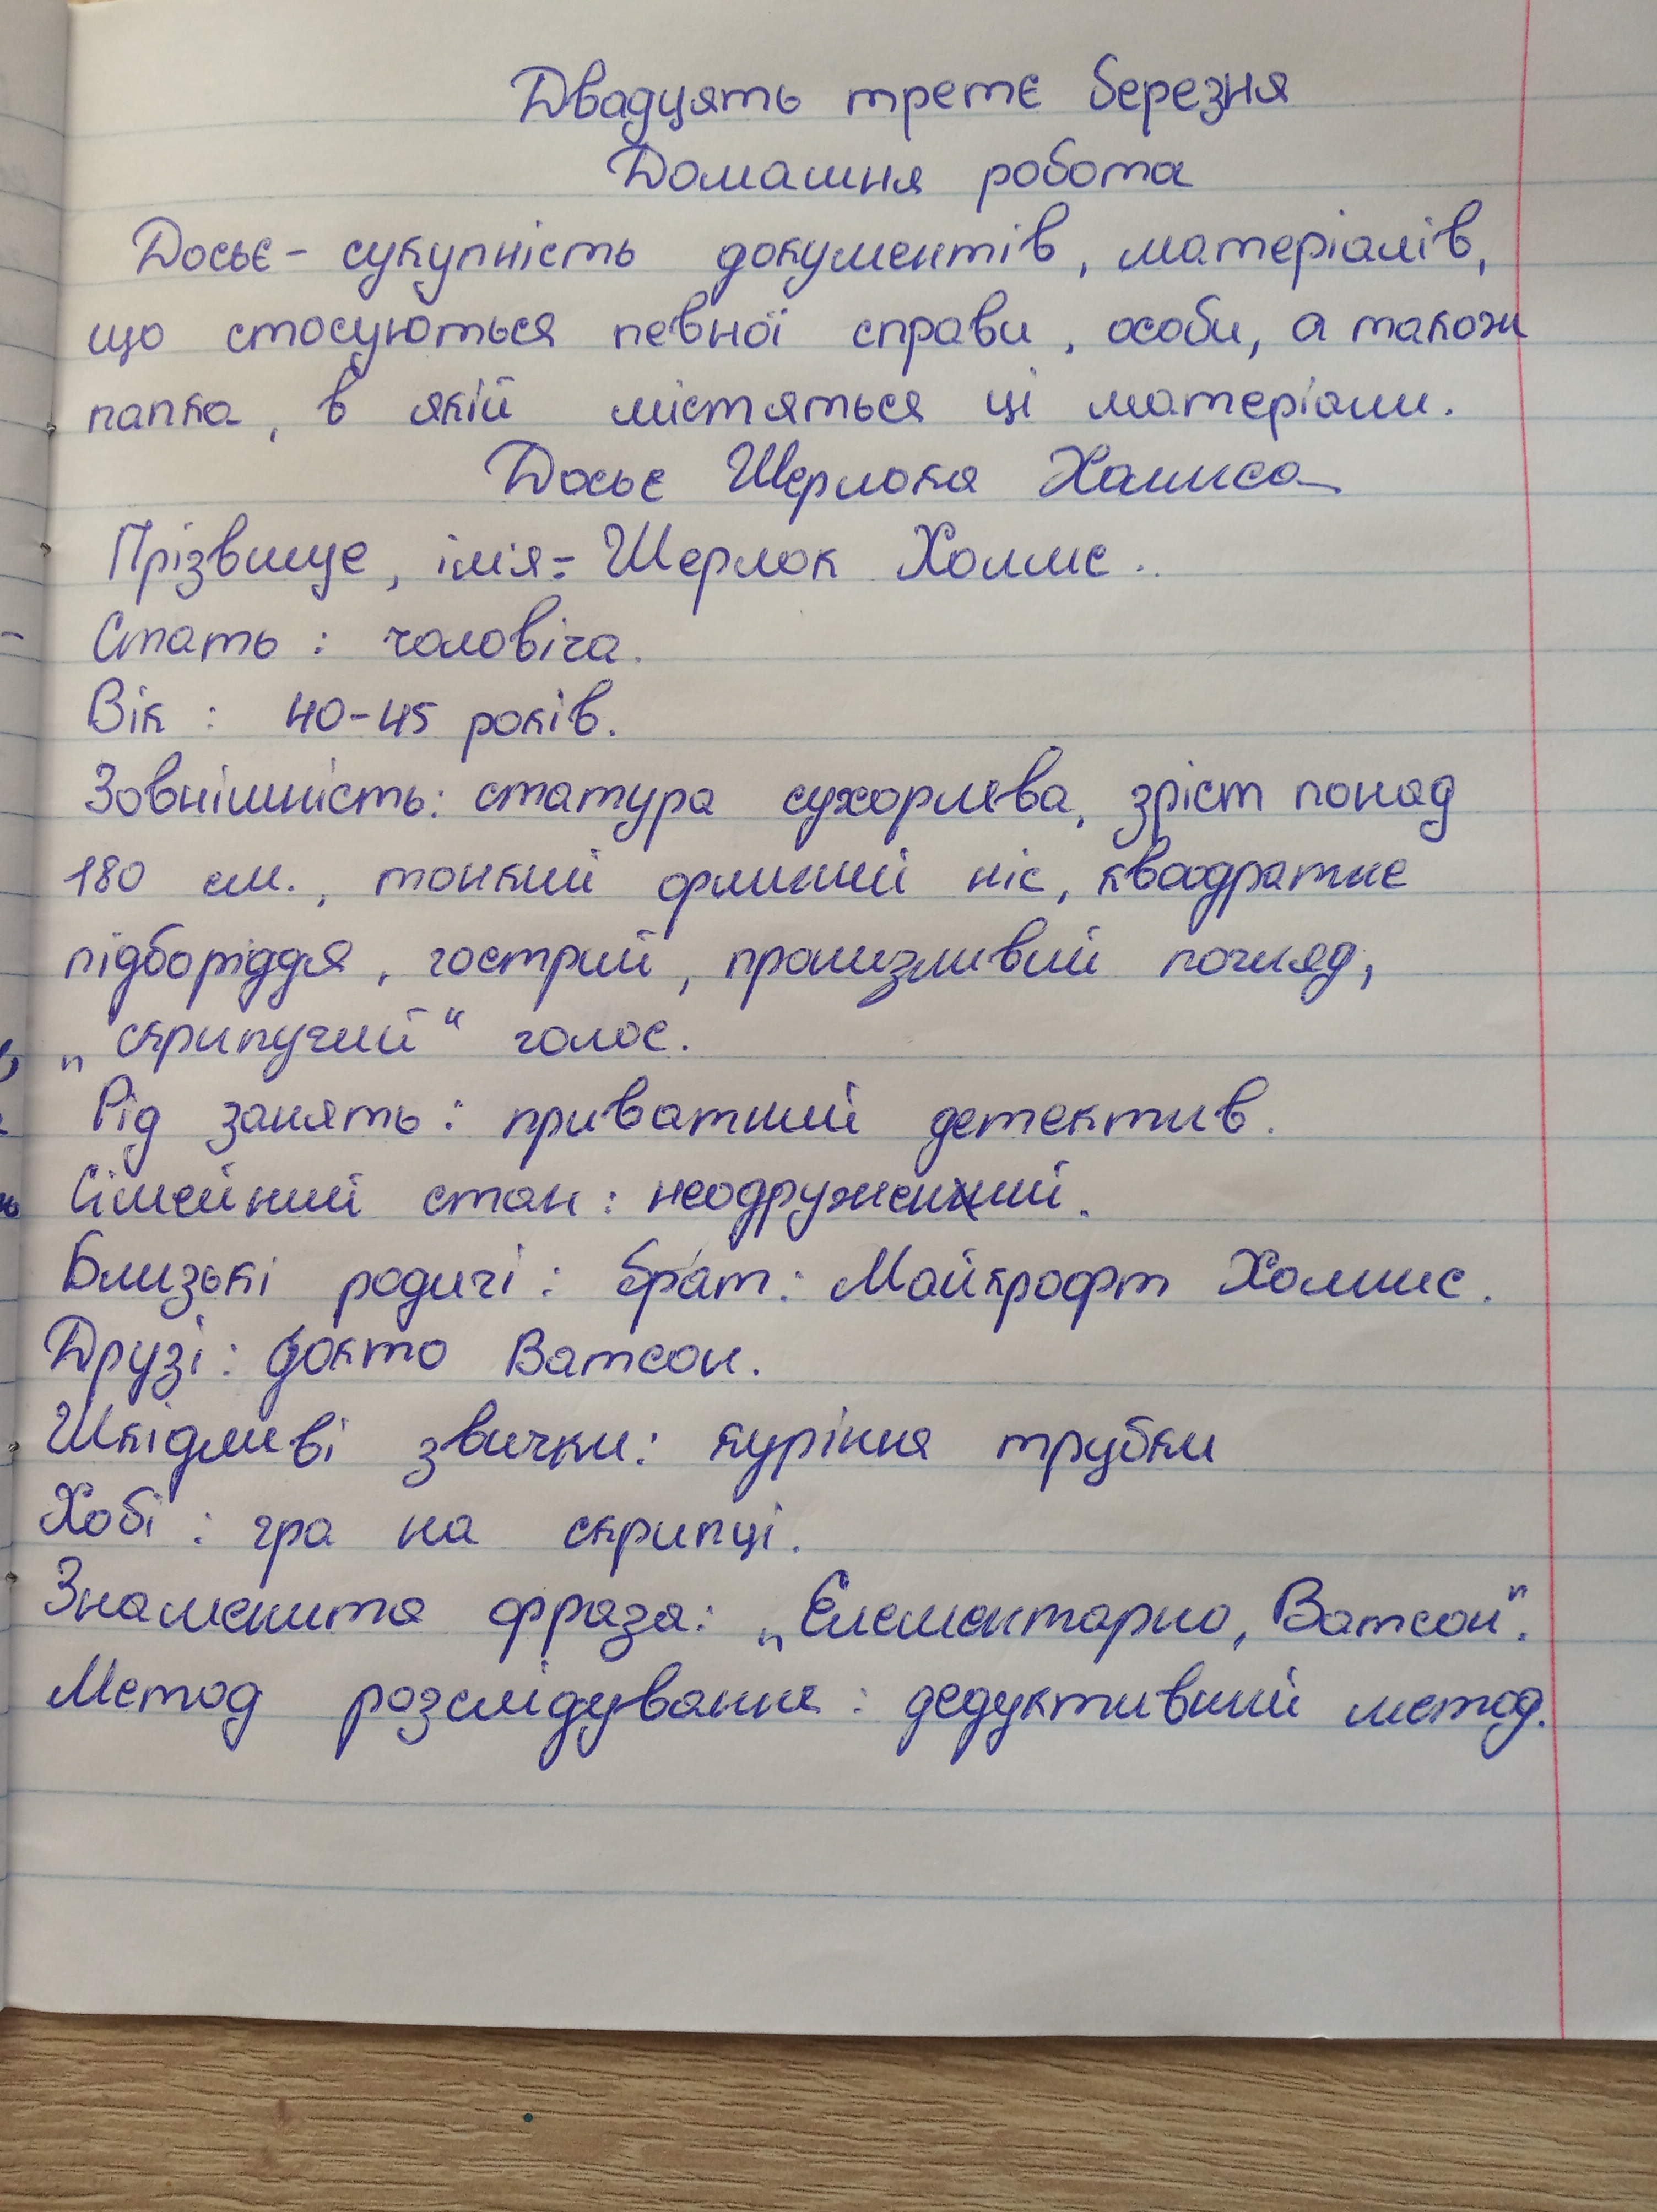 Двадцять третє березня
Домашня робота
Досьє - сукупність документів, матеріалів,
що стосуються певної справи, особи, а також
папка, в якій містяться ці матеріали.
Досьє Шерлока Холмса
Прізвище, ім'я: Шерлок Холмс.
Стать: чоловіча.
Вік: 40-45 років.
Зовнішність: статура сухорлява, зріст понад
180 см., тонкий орлиний ніс, квадратне
підборіддя, гострий, пронизливий погляд,
„скрипучий“ голос.
Рід занять: приватний детектив.
Сімейний стан: неодружений.
Близькі родичі: брат: Майкрофт Холмс.
Друзі: докто Ватсон.
Шкідливі звички: куріння трубки
Хобі: гра на скрипці.
Знаменита фраза: „Елементарно, Ватсон".
Метод розслідування: дедуктивний метод.